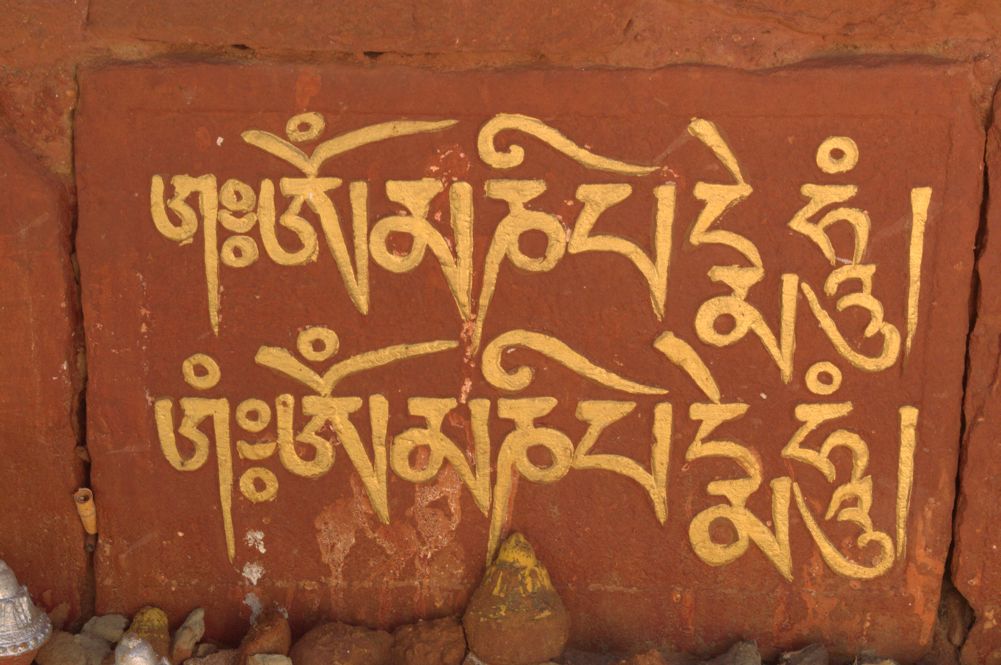 ཨཿཨོཾམཎིཔདྨེཧཱུཾ།
ཨཾཿཨོཾམཎིཔདྨེཧཱུཾ།